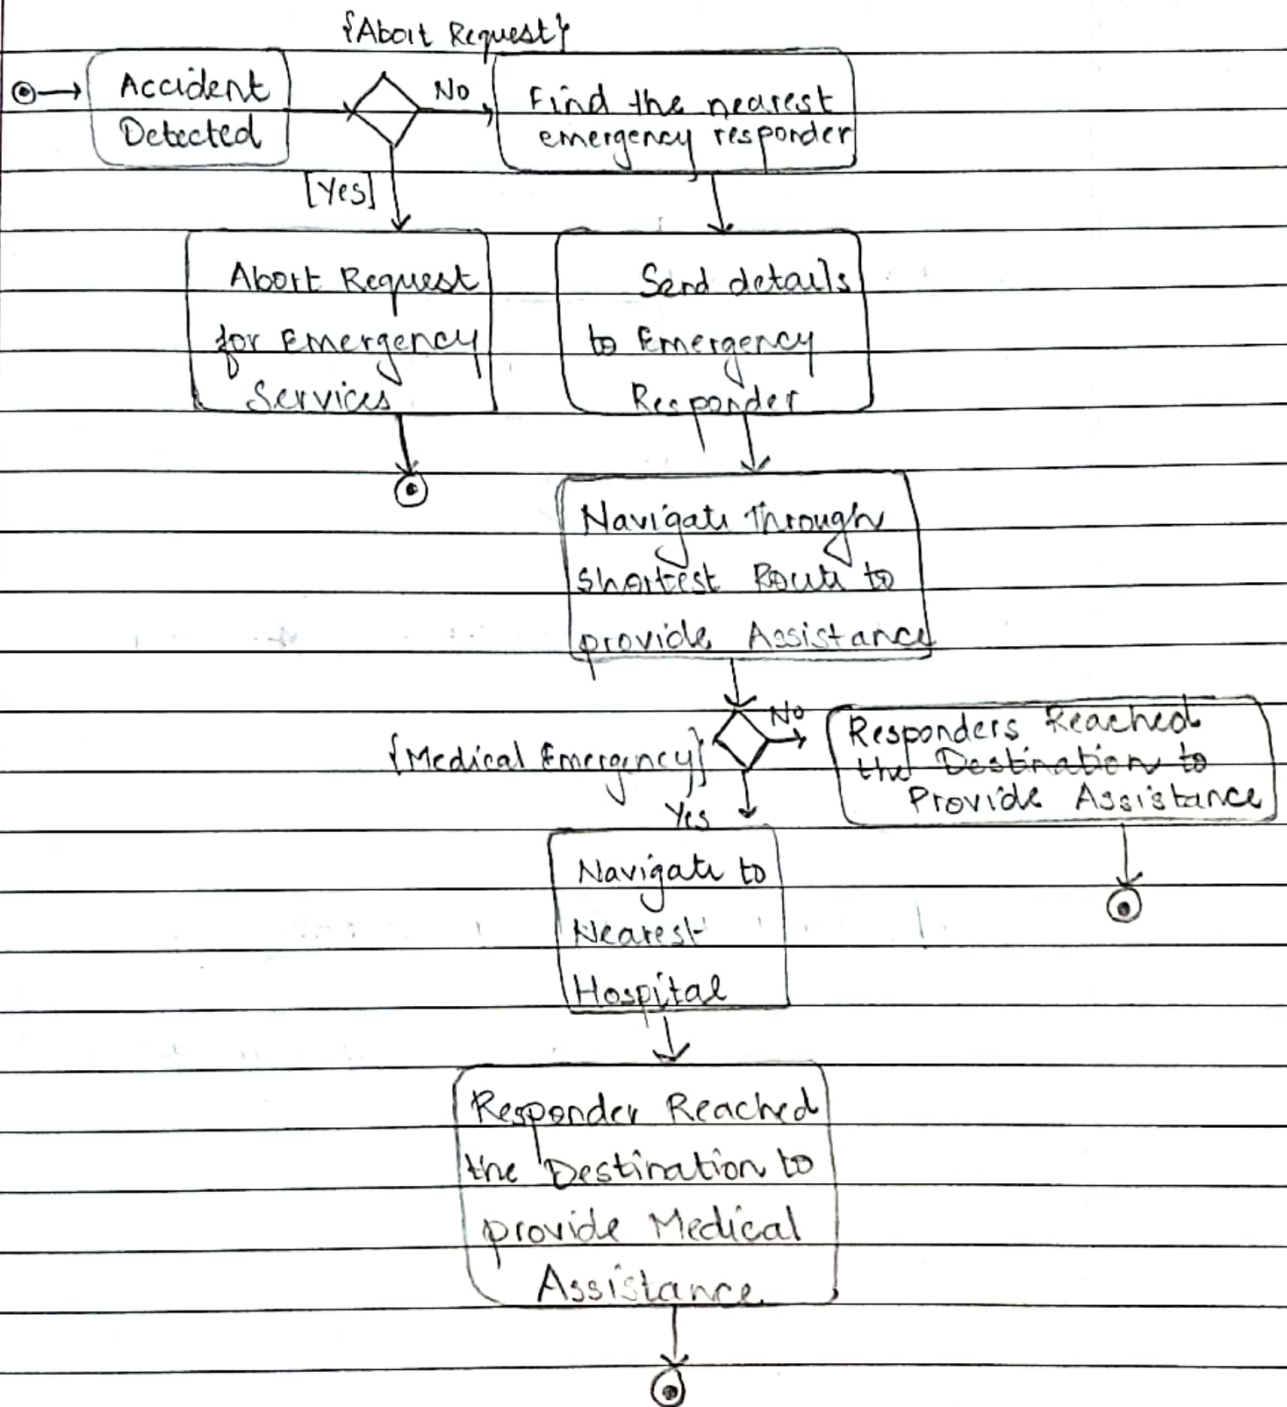 {Abort Request}
Accident
Detected
No
Find the nearest
emergency responder
[Yes]
Abort Request
for Emergency
Services
Send details
to Emergency
Responder
Navigate Through
Shortest Route to
provide Assistance
{Medical Emergency}
No
Yes
Responders Reached
the Destination to
Provide Assistance
Navigate to
Nearest
Hospital
Responder Reached
the Destination to
provide Medical
Assistance